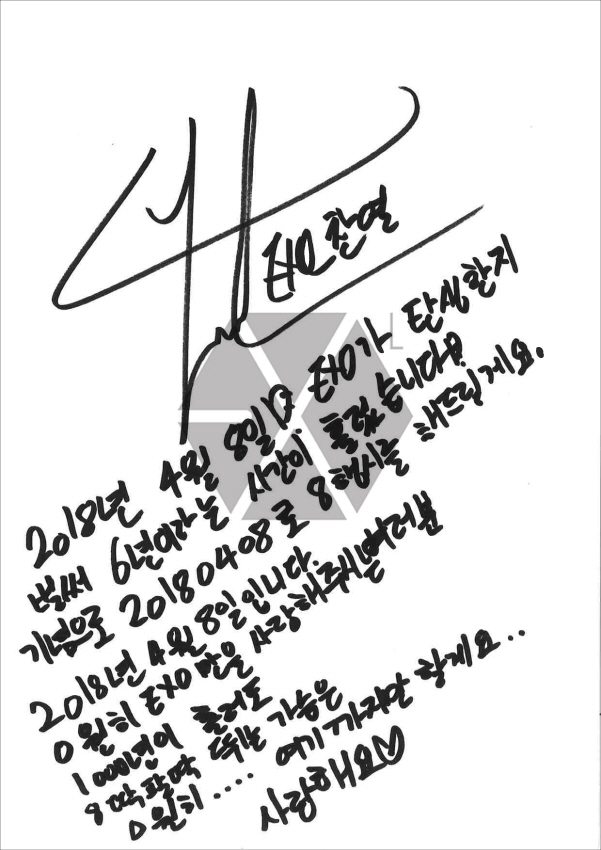 EXO 찬열
L
2018년 4월 8일은 EXO가 탄생한지
벌써 6년이라는 시간이 흘렀습니다!?
기념으로 20180408로 8행시를 해드릴게요.
2018년 4월 8일입니다.
0원히 EXO만을 사랑해주시는 여러분
1000년이 흘러도
8딱팔딱 뛰는 가슴은
0원히.... 여기까지만 할게요..
사랑해요♡